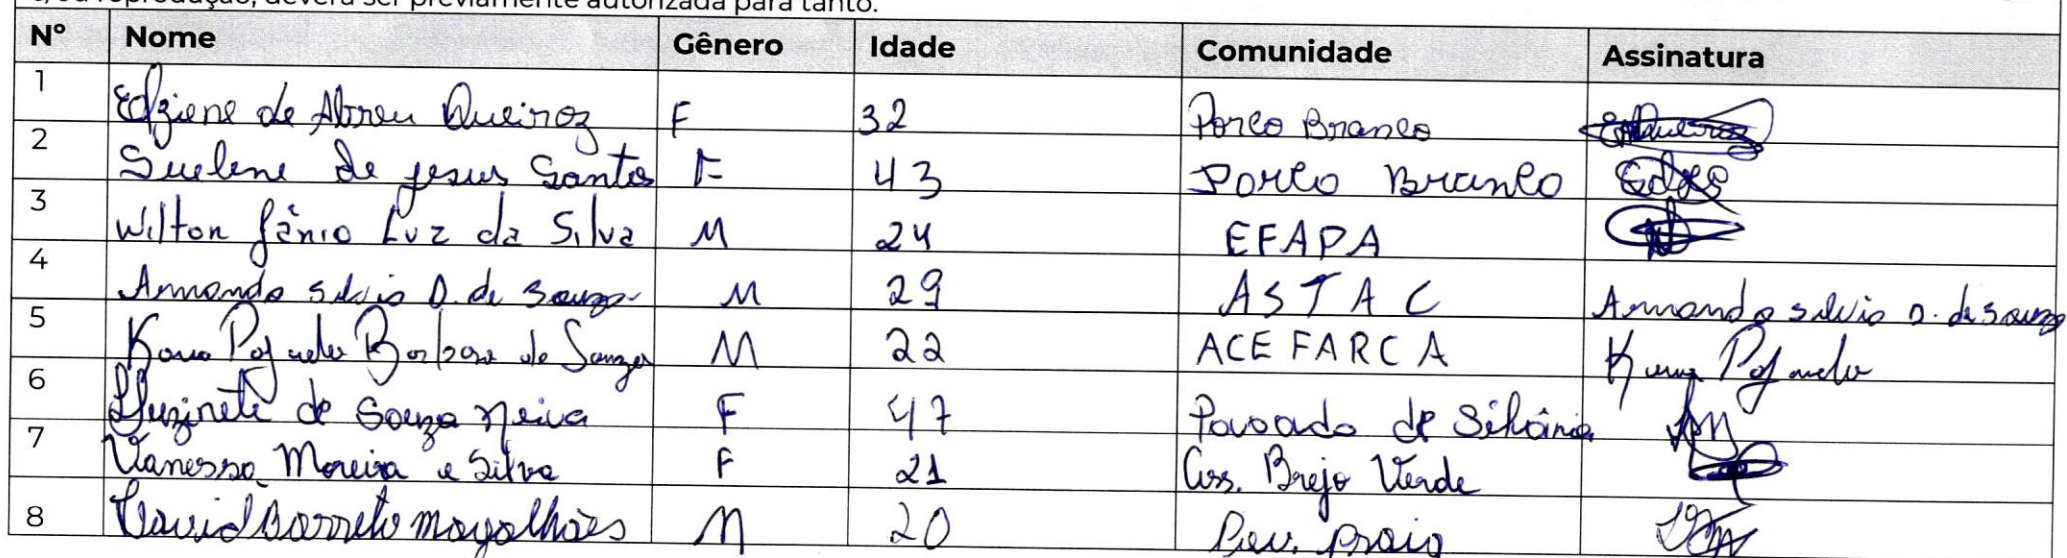 e/ou reprodução, deverá ser previamente autorizada para tanto.
Nº Nome Gênero Idade Comunidade Assinatura
1 Edziene de Abreu Queiroz F 32 Porco Branco
2 Suelene de jesus Santos F 43 Porco Branco
3 Wilton fânio Luz da Silva M 24 EFAPA
4 Armando Silvio D. de Souza M 29 ASTAC Armando Silvio D. de Souza
5 de Souza M 22 ACEFARCA
6 Luzinete de Souza Neiva F 47 Povoado de
7 Vanessa Moreira e Silva F 21 Ass. Brejo Verde
8 David Barreto Magalhães M 20 Pov. praia